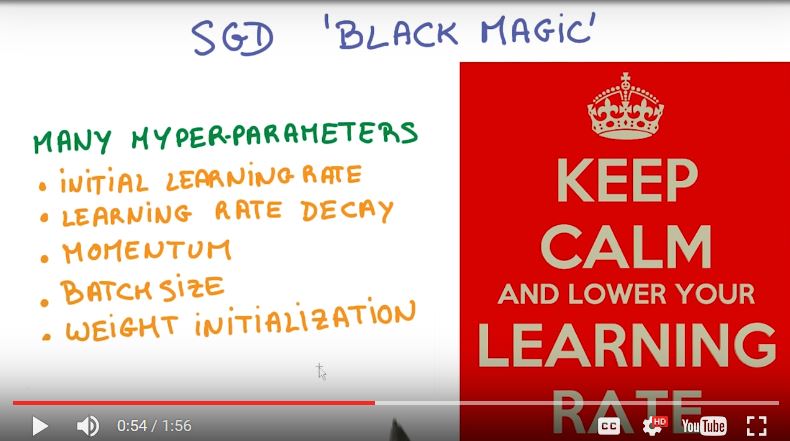 SGD 'BLACK MAGIC'
MANY HYPER-PARAMETERS
• INITIAL LEARNING RATE
• LEARNING RATE DECAY
• MOMENTUM
• BATCH SIZE
• WEIGHT INITIALIZATION
KEEP
CALM
AND LOWER YOUR
LEARNING
RATE
0:54 / 1:56
CC
HD
YouTube